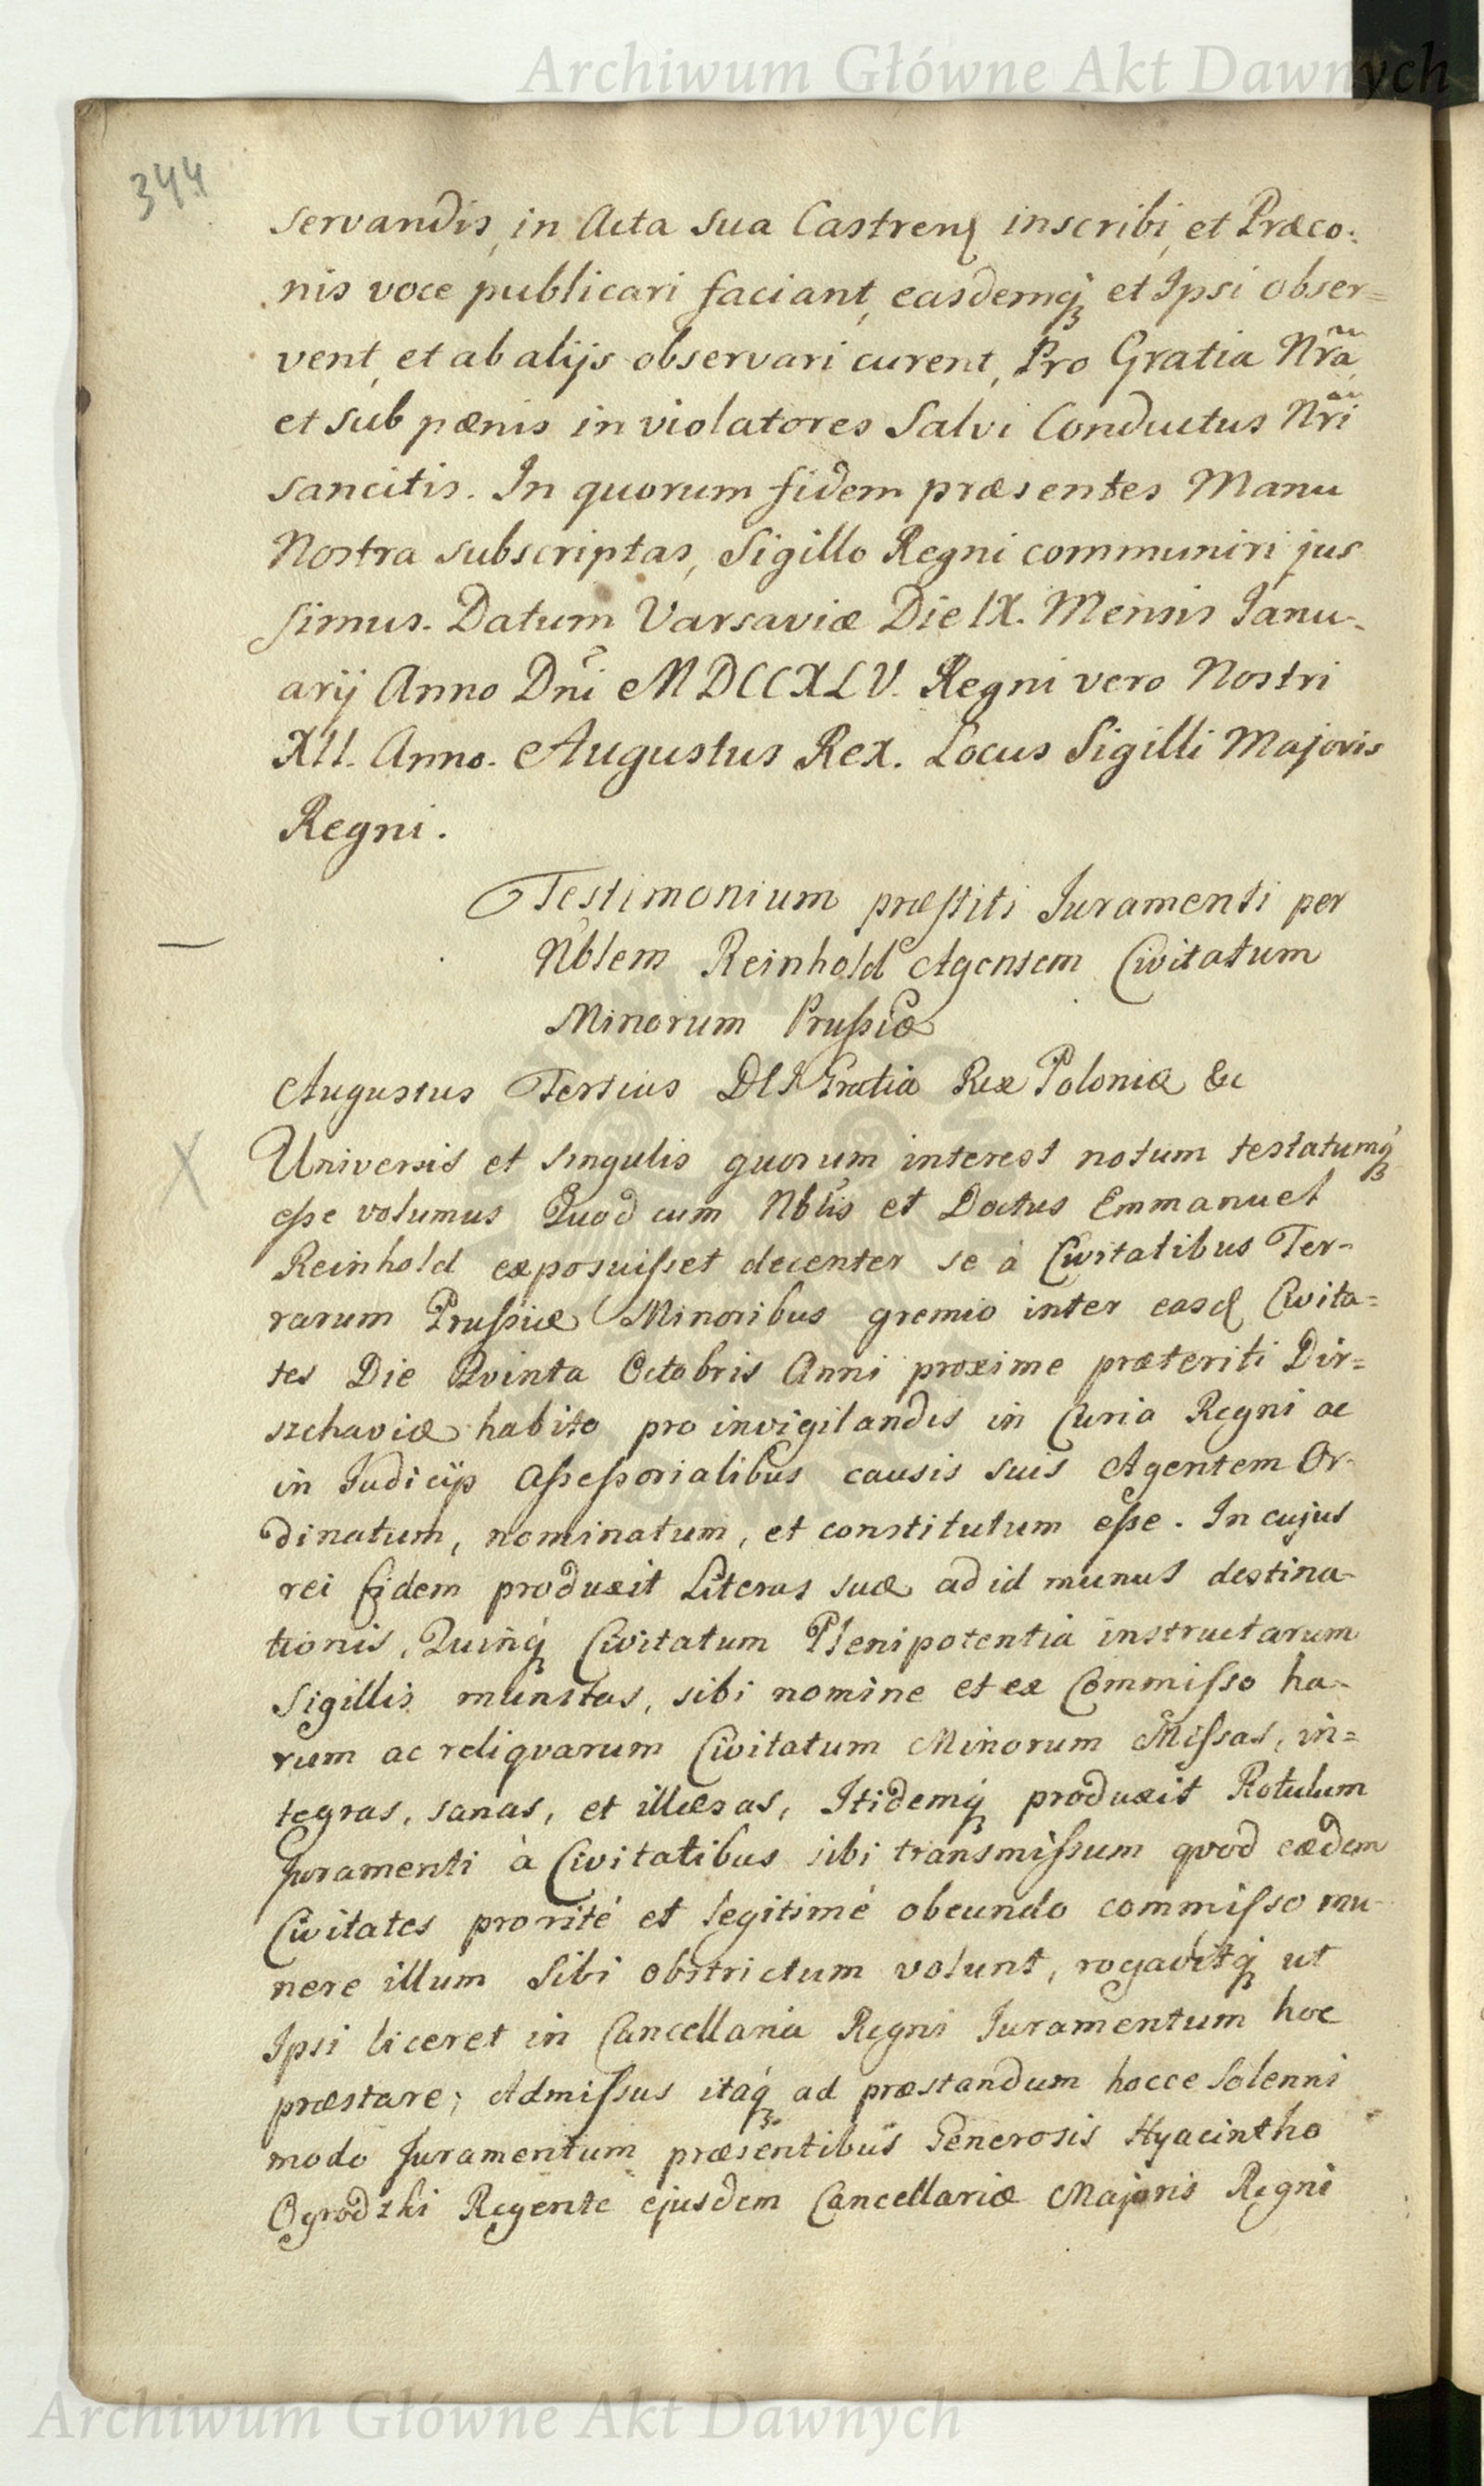 Archiwum Główne Akt Dawnych
344
servandis, in Acta sua Castren inscribi, et Præco:
nis voce publicari faciant, easdemq́ et Ipsi obser=
vent, et ab alijs observari curent, Pro Gratia Nrã,
et sub pænis in violatores Salvi Conductus Nrĩ
sancitis. In quorum fidem præsentes Manu
Nostra subscriptas, Sigillo Regni communiri jus
simus. Datum Varsaviæ Die IX. Mensis Janu-
arij Anno Dnĩ MDCCXLV. Regni vero Nostri
XII. Anno. Augustus Rex. Locus Sigilli Majoris
Regni.
Testimonium præstiti Juramenti per
Nblem Reinhold Agensem Civitatum
Minorum Prussiæ
Augustus Tertius DEI Gratia Rex Poloniæ &c
Universis et singulis quorum interest notum testatumq́
esse volumus Quod cum Nblis et Doctus Emmanuel
Reinhold exposuisset decenter se à Civitatibus Ter-
rarum Prussiæ Minoribus gremio inter easd Civita=
tes Die Qvinta Octobris Anni proxime præteriti Dir=
schaviæ habito pro invigilandis in Curia Regni ac
in Judicijs Assessorialibus causis suis Agentem Or-
dinatum, nominatum, et constitutum esse. In cujus
rei fidem produxit Literas suæ ad id munus destina-
tionis, Quinq́ Civitatum Plenipotentia instructarum
Sigillis munitas, sibi nomine et ex Commisso ha-
rum ac reliqvarum Civitatum Minorum Missas, in=
tegras, sanas, et illæsas, Itidemq́ produxit Rotulum
Juramenti à Civitatibus sibi transmissum qvod eædem
Civitates pro rité et legitimé obeundo commisso mu-
nere illum Sibi obstrictum volunt, rogavitq́ ut
Ipsi liceret in Cancellaria Regni Juramentum hoc
præstare; Admissus itaq́ ad præstandum hocce Solenni
modo Juramentum præsentibus Generosis Hyacintho
Ogrodzki Regente ejusdem Cancellariæ Majoris Regni
Archiwum Główne Akt Dawnych